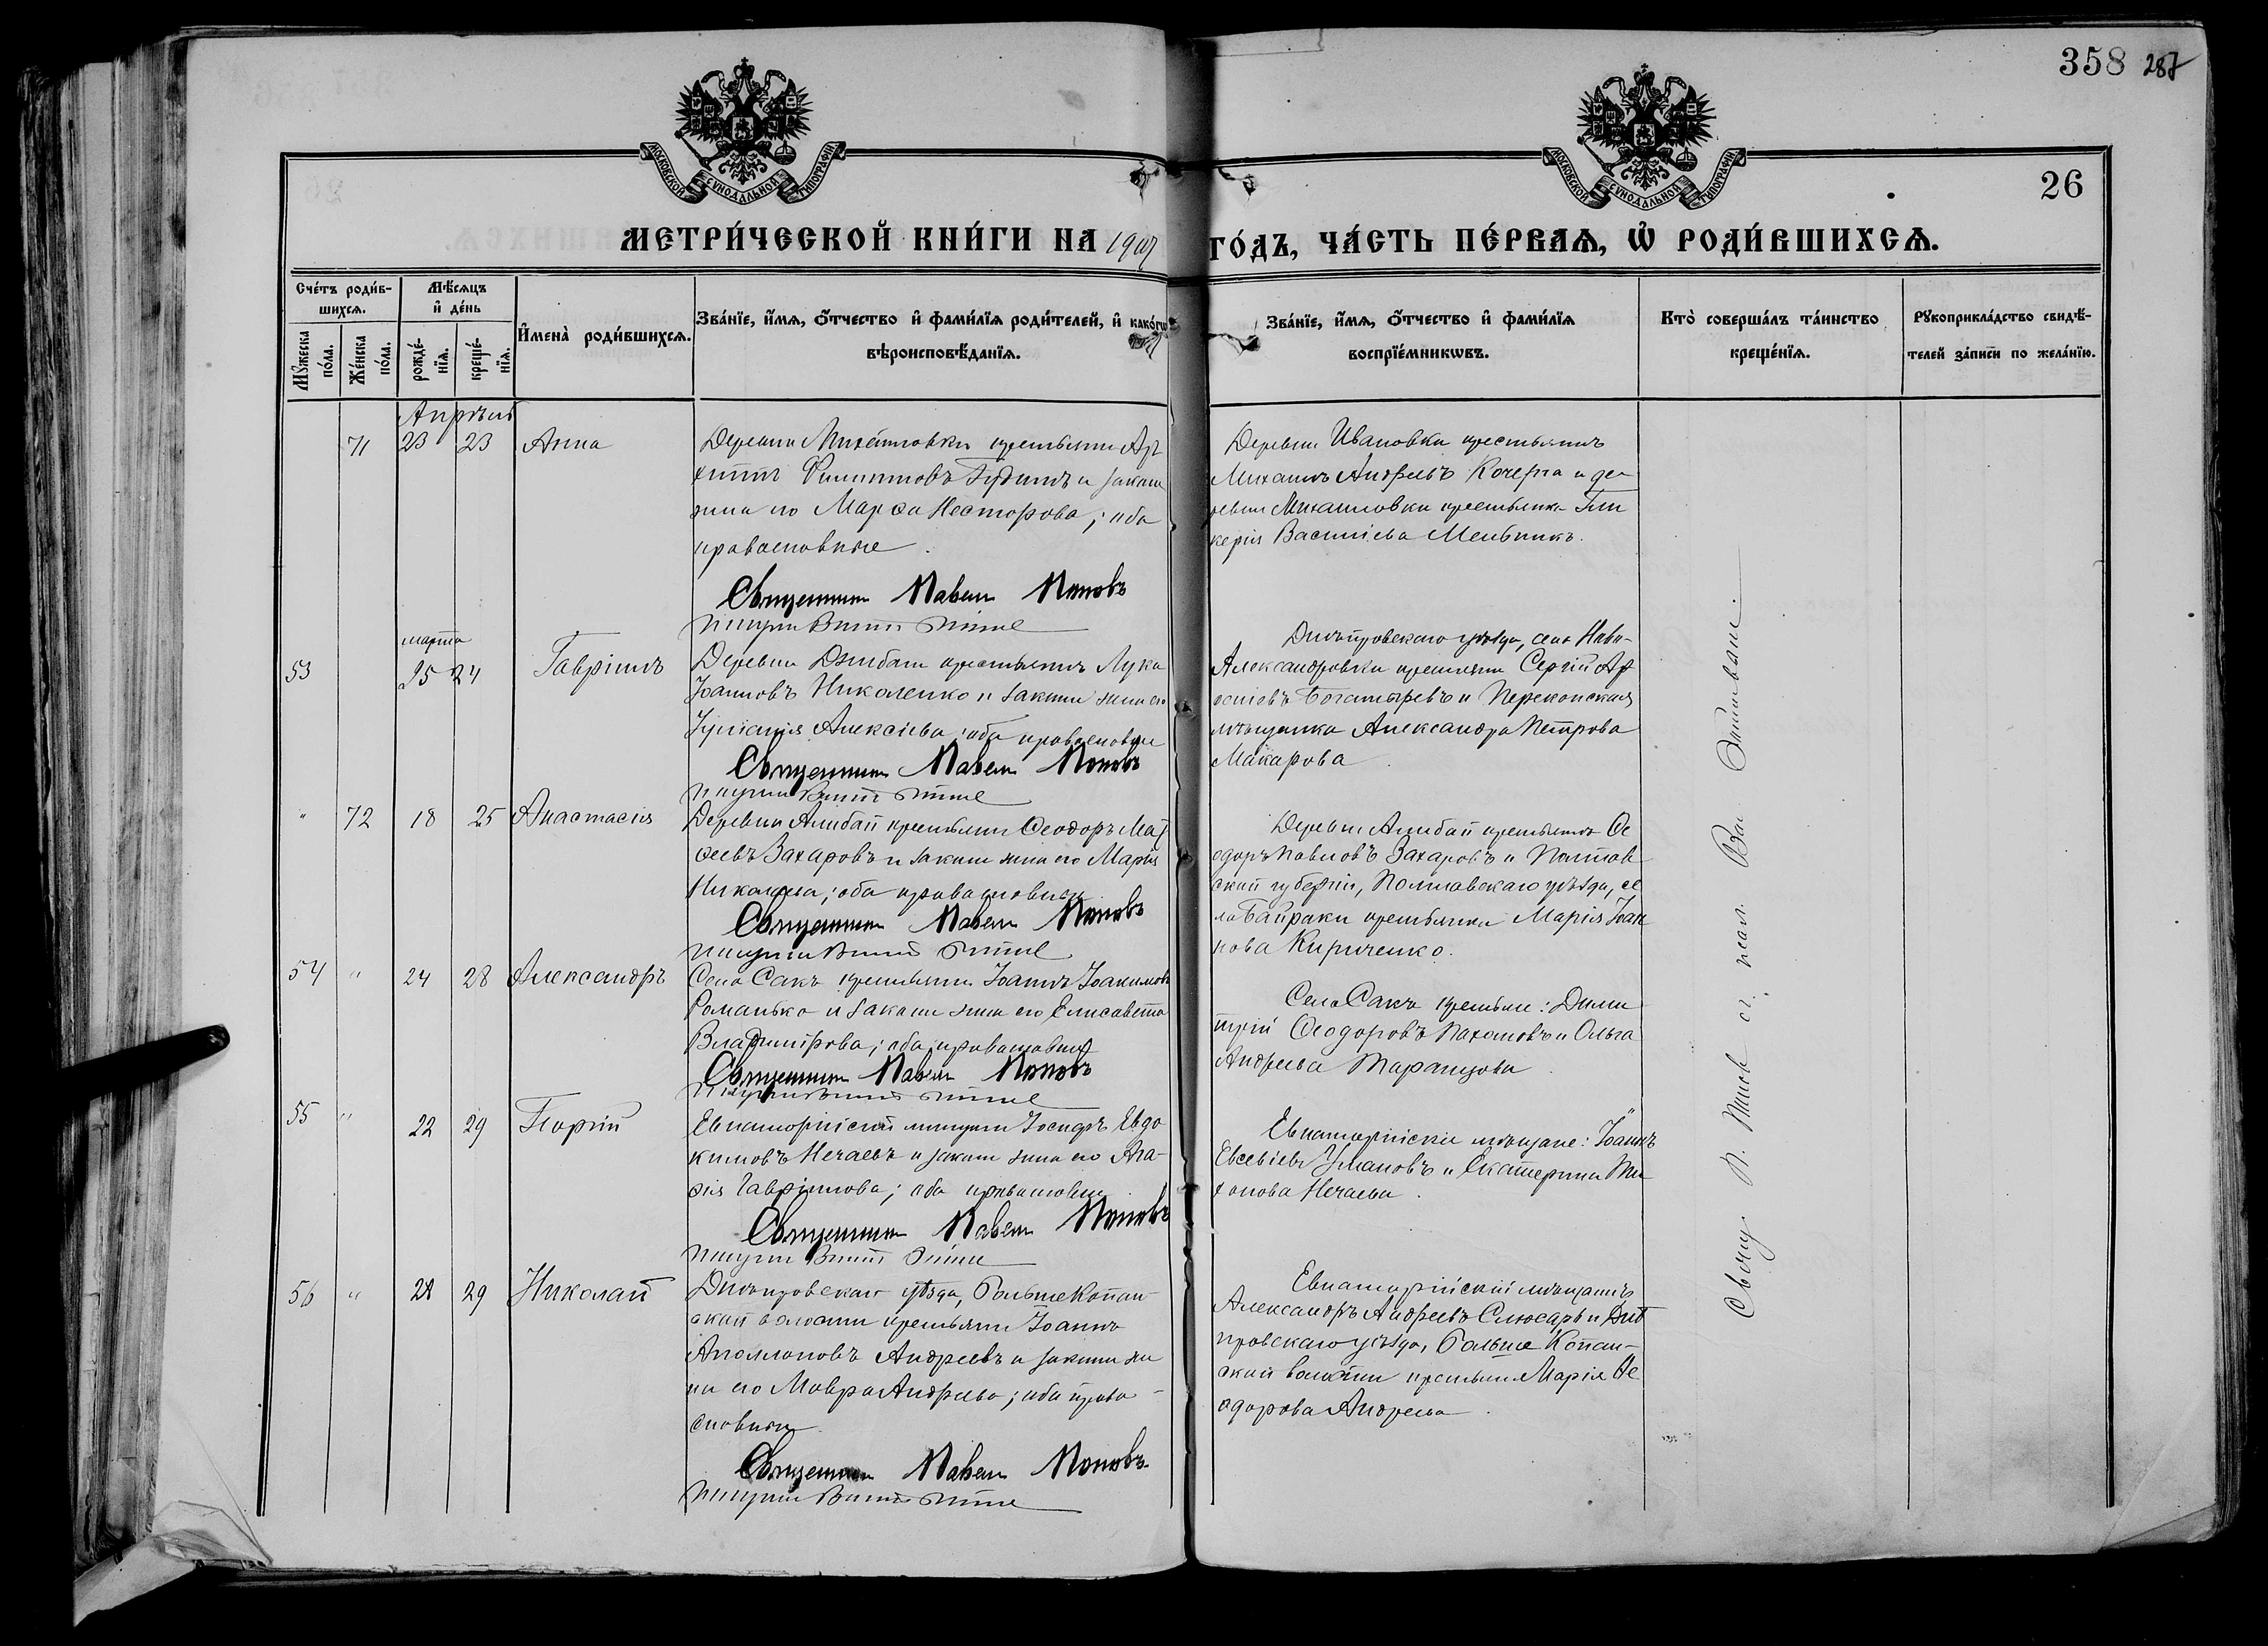 358 287
МОСКОВСКОЙ СѴНОДАЛЬНОЙ ТИПОГРАФІИ
МОСКОВСКОЙ СѴНОДАЛЬНОЙ ТИПОГРАФІИ
26
МЕТРИ́ЧЕСКОЙ КНИ́ГИ НА 1907 ГО́ДЪ, ЧА́СТЬ ПЕ́РВАѦ, Ѡ҆ РОДИ́ВШИХСѦ.
Сче́тъ роди́в-
шихсѧ.
Мꙋжеска по́ла.
Же́нска по́ла.
Мѣ́сѧцъ
и҆ де́нь
рожде́-
нїѧ.
креще́-
нїѧ.
И҆мена̀ роди́вшихсѧ.
Зва́нїе, и҆́мѧ, ѻ҆́тчество и҆ фами́лїѧ роди́телей, и҆ како́гѡ
вѣроисповѣ́данїѧ.
Зва́нїе, и҆́мѧ, ѻ҆́тчество и҆ фами́лїѧ
воспрїе́мникѡвъ.
Кто̀ соверша́лъ та́инство
креще́нїѧ.
Рꙋкоприкла́дство свидѣ́-
телей за́писи по жела́нїю.
Апрѣль
71 23 23 Анна
Деревни Михайловки крестьянин
Филипповъ и закон
ная его Марѳа Несторова; оба
православные.
Священник Павел Поповъ
Деревни Ивановки крестьянинъ
Михаилъ Андреевъ Кочерга и де
ревни Михайловки крестьянка Гли
керія Василіева Мельникъ.
марта
53 25 24 Гавріилъ
Деревни крестьянинъ Лука
Іоанновъ Николенко и закон. жена его
Іуліанія Алексіева; оба православные
Священник Павел Поповъ
Днѣпровскаго уѣзда, села Ново-
Александровки крестьянин Сергій
Богатыревъ и Перекопская
мѣщанка Александра Петрова
Макарова.
" 72 18 25 Анастасія
Деревни Алибай крестьянин Ѳеодоръ Мат
ѳеевъ Захаровъ и закон. жена его Марія
Николаева; оба православные
Священник Павел Поповъ
Деревни Алибай крестьянин Ѳе
одоръ Павловъ Захаровъ и Полтав
ской губерніи, Полтавскаго уѣзда, се
ла Байраки крестьянка Марія Іоан
нова Кириченко.
54 " 24 28 Александръ
Села Сакъ крестьянин Іоаннъ Іоакимовъ
Романько и закон. жена его Елисавета
Владимірова; оба православные
Священник Павел Поповъ
Села Сакъ крестьяне: Дими
трій Ѳеодоровъ Пахомовъ и Ольга
Андреева Таранцова.
55 " 22 29 Георгій
Евпаторійскій мещанин Іосифъ Евдо
кимовъ Нечаевъ и закон. жена его Ага-
ѳія Гавріилова; оба православные
Священник Павел Поповъ
Евпаторійскіе мѣщане: Іоаннъ
Евсевіевъ Улановъ и Екатерина Ти
хонова Нечаева.
56 " 22 29 Николай
Днѣпровскаго уѣзда, БольшеКопан-
ской волости крестьянин Іоаннъ
Аполлоновъ Андреевъ и закон. же
на его Мавра Андреева; оба право-
славные
Священник Павел Поповъ.
Евпаторійскій мѣщанинъ
Александръ Андреевъ Слюсарь и Днѣ
провскаго уѣзда, Больше Копан-
ской волости крестьянка Марія Ѳе
одорова Андреева.
Свящ. П. Попов съ псал.